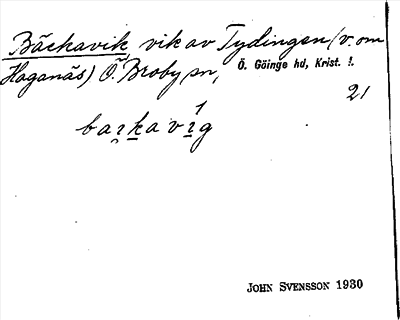 Bäckavik, vik av Tydingen (v. om
Haganäs) Ö. Broby sn, Ö. Göinge hd, Krist. l.
21
1
baı̯kavıg
JOHN SVENSSON 1930